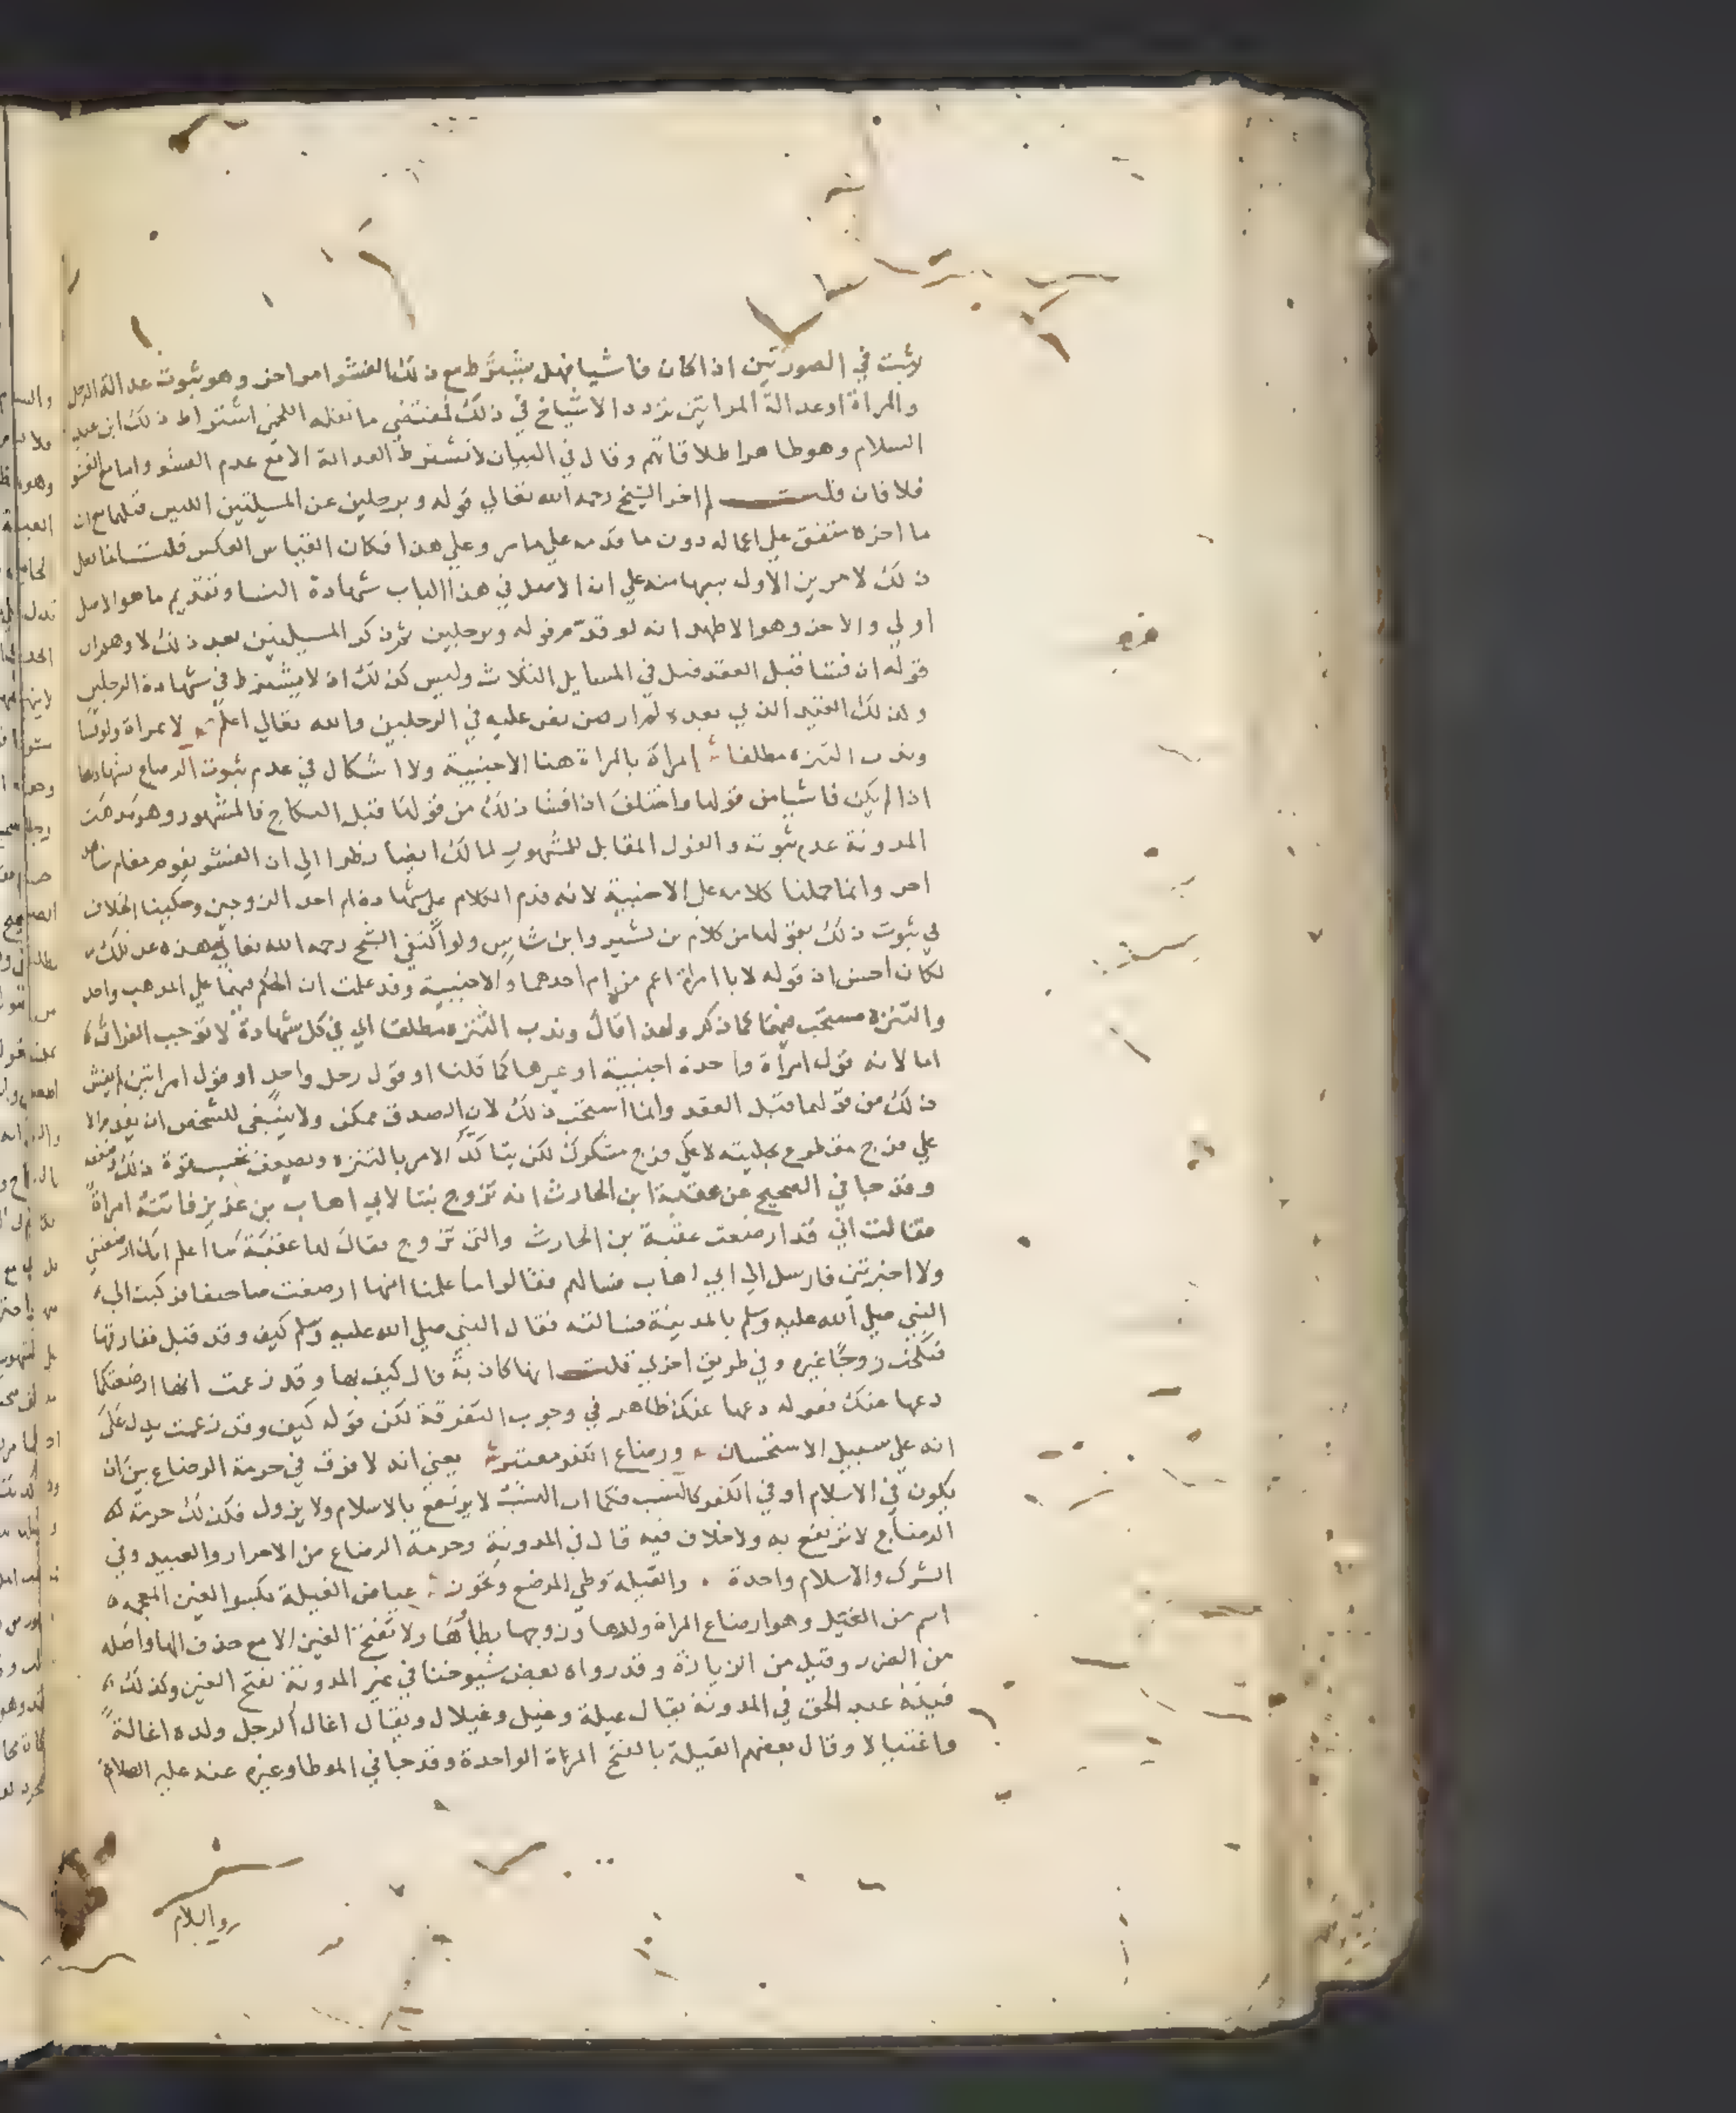 لا ثبت في الصورتين اذا كان فاشيا فهل يشترط مع ذلك الفشوا مر اخر وهو ثبوت عدالة الرجل
والمراة او عدالة المراتين تردد الاشياخ في ذلك فمقتضي ما نقله اللخمي اشتراط ذلك ابن عبد
السلام وهو ظاهر اطلاقاتهم وقال في البيان لا تشترط العدالة الا مع عدم الفشو واما مع الفشو
فلا فان قلت لم اخر الشيخ رحمه الله تعالي قوله وبرجلين عن المسيلتين اللتين قبلهما مع ان
ما اخره متفق علي اعماله دون ما قدمه علي ما مر وعلي هذا فكان القياس العكس قلت انما فعل
ذلك لامرين الاول منه علي ان الاصل في هذا الباب شهادة النسا وتقديم ما هو الاصل
اولي والاخر وهو الاظهر انه لو قدم قوله وبرجلين ثم ذكر المسيلتين بعد ذلك لا وهم ان
قوله ان فشا قبل العقد قيد في المسايل الثلاث وليس كذلك اذ لا يشترط في شهادة الرجلين
وكذلك القيد الذي بعده لم ار من نص عليه في الرجلين والله تعالي اعلم لا بامراة ولو فشا
وندب التنزه مطلقا امراة بالمراة هنا الاجنبية ولا اشكال في عدم ثبوت الرضاع بشهادتها
اذا لم يكن فاشيا من قولها واختلف اذا فشا ذلك من قولها قبل النكاح فالمشهور وهو مذهب
المدونة عدم ثبوته والقول المقابل للمشهور لمالك ايضا نظرا الي ان الفشو يقوم مقام شاهد
اخر وانما حملنا كلامه علي الاجنبية لانه قدم الكلام علي شهادة ام احد الزوجين وحكينا الخلاف
في ثبوت ذلك بقولها من كلام بن بشير وابن شاس ولو اكتفي الشيخ رحمه الله تعالي بهذه عن تلك
لكان احسن اذ قوله لا بامراة اعم من ام احدهما والاجنبية وقد علمت ان الحكم فيهما علي المذهب واحد
والتنزه مستحب فيهما كما ذكر ولهذا قال وندب التنزه مطلقا اي في كل شهادة لا توجب الفراق
اما لانه قول امراة واحدة اجنبية او غيرها كما قلنا او قول رجل واحد او قول امراتين لم يفش
ذلك من قولهما قبل العقد وانما استحب ذلك لان الصدق ممكن ولا ينبغي للشخص ان يقدم الا
علي فرج مقطوع بحليته لا علي فرج مشكوك لكن يتاكد الامر بالتنزه ويضعف بحسب قوة ذلك وضعفه
وقد جا في الصحيح عن عقبة ابن الحارث انه تزوج بنتا لابي اهاب بن عزيز فاتته امراة
فقالت اني قد ارضعت عقبة بن الحارث والتي تزوج فقال لها عقبة ما اعلم انك ارضعتني
ولا اخبرتني فارسل الي ابي اهاب فسالهم فقالوا ما علمنا انها ارضعت صاحبنا فركب الي
النبي صلي الله عليه وسلم بالمدينة فسالته فقال النبي صلي الله عليه وسلم كيف وقد قيل ففارقها
فنكحت زوجا غيره وفي طريق اخري قلت انها كاذبة قال كيف بها وقد زعمت انها ارضعتكما
دعها عنك فقوله دعها عنك ظاهر في وجوب التفرقة لكن قوله كيف وقد زعمت يدل علي
انه علي سبيل الاستحسان ورضاع الكفر معتبر يعني انه لا فرق في حرمة الرضاع بين ان
يكون في الاسلام او في الكفر كالنسب فكما ان النسب لا يرتفع بالاسلام ولا يزول فكذلك حرمة
الرضاع لا ترتفع به ولا خلاف فيه قال في المدونة وحرمة الرضاع من الاحرار والعبيد وفي
الشرك والاسلام واحدة والغيلة وطي المرضع وتجوز عياض الغيلة بكسر الغين المعجمة
اسم من الغيل وهو ارضاع المراة ولدها وزوجها يطاها ولا تفتح الغين الا مع حذف الها واصله
من الضرر وقيل من الزيادة وقد رواه بعض شيوخنا في غير المدونة بفتح الغين وكذلك
قيده عبد الحق في المدونة يقال غيلة وغيل وغيلال ويقال اغال الرجل ولده اغالة
واغتيالا وقال بعضهم الغيلة بالفتح المراة الواحدة وقد جا في الموطا وغيره عنه عليه الصلاة